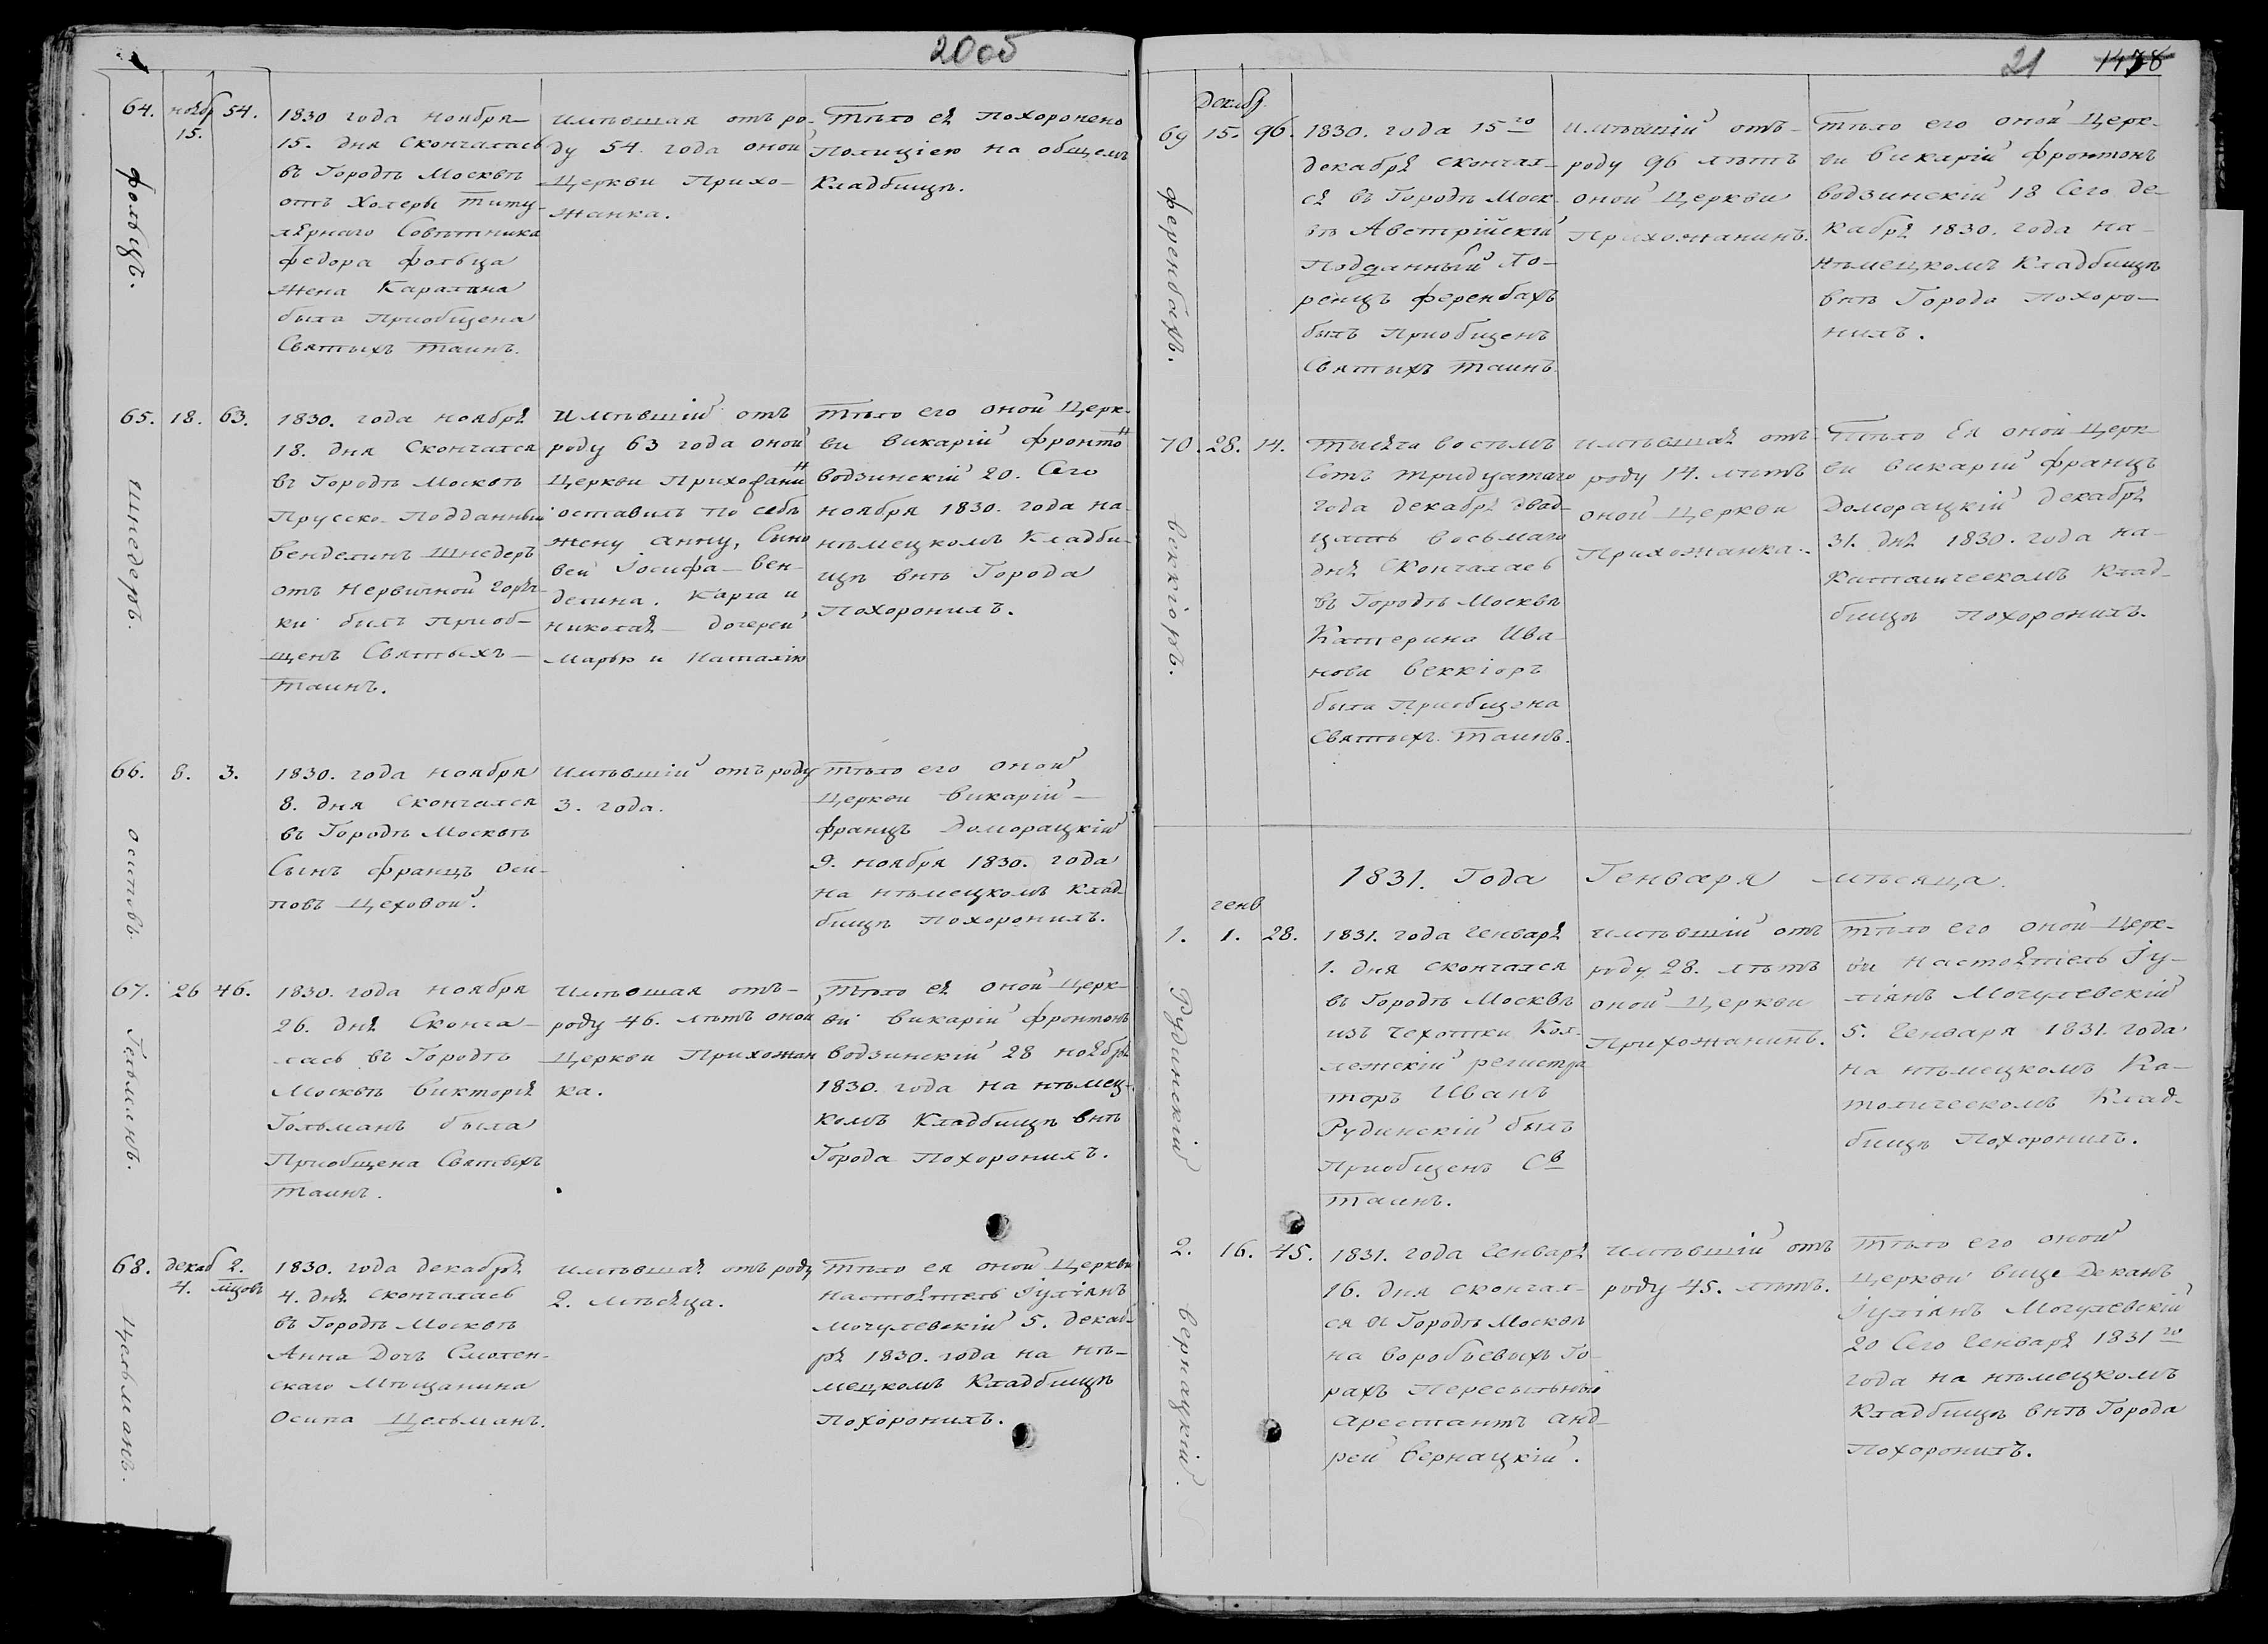 20об
64. ноябр 15. 54.
фольцъ.
1830 года ноября
15. дня скончалась
въ Городѣ Москвѣ
отъ Холеры Титу-
лярнаго Совѣтника
федора фольца
жена Каралина
была Приобщена
Святыхъ таинъ.
имѣвшая отъ ро-
ду 54. года оной
Церкви Прихо-
жанка.
тѣло ея похоронено
Полициею на общемъ
Кладбищѣ.
65. 18. 63.
Шнедеръ.
1830. года ноября
18. дня скончался
въ Городѣ Москвѣ
Прусско-Подданный
венделинъ шнедеръ
отъ Нервичной горяч-
ки былъ приоб-
щенъ Святыхъ
таинъ.
имѣвшій отъ
роду 63 года оной
Церкви Прихожани
оставилъ по себѣ
жену анну, сыно
вей Іосифа-вен-
делина. Карла и
николая - дочерей
Марью и Наталію
тѣло его оной Церк-
ви викарій фронтонъ
водзинскій 20. Сего
ноября 1830. года на
нѣмецкомъ Кладби-
щѣ внѣ Города
Похоронилъ.
66. 8. 3.
осиповъ.
1830. года ноября
8. дня скончался
въ Городѣ Москвѣ
Сынъ францъ оси-
повъ Цеховой.
имѣвшій отъ роду
3. года.
тѣло его оной
Церкви викарій
францъ доморацкій
9. ноября 1830. года
на нѣмецкомъ клад-
бищѣ похоронилъ.
67. 26 46.
Гольманъ.
1830. года ноября
26. дня сконча-
лась въ Городѣ
Москвѣ викторія
Гольманъ была
Приобщена Святыхъ
таинъ.
имѣвшая отъ-
роду 46. лѣтъ оной
Церкви Прихожан
ка.
тѣло ея оной Церк-
ви викарій фронтонъ
водзинскій 28 ноября
1830. года на нѣмец-
комъ Кладбищѣ внѣ
Города похоронилъ.
68. декаб 4. 2. мцовъ
Цельманъ.
1830. года декабря
4. дня скончалась
въ Городѣ Москвѣ
Анна Дочь Смолен-
скаго Мѣщанина
Осипа Цельманъ.
имѣвшая отъ роду
2. мѣсяца.
тѣло ея оной Церкви
настоятель Іуліянъ
мочулевскій 5. декаб-
ря 1830. года на нѣ-
мецкомъ Кладбищѣ
похоронилъ.
21 1438
декабр.
69 15. 96.
ференбахъ.
1830. года 15го
декабря скончал-
ся въ Городѣ Моск-
вѣ Австрійскій
Подданный Ло-
ренцъ ференбахъ
былъ Приобщенъ
Святыхъ таинъ.
имѣвшій отъ
роду 96 лѣтъ
оной Церкви
Прихожанинъ.
тѣло его оной Церк-
ви викарій фронтонъ
водзинскій 18 Сего де-
кабря 1830. года на
нѣмецкомъ Кладбищѣ
внѣ Города похоро-
нилъ.
70. 28. 14.
веккіоръ.
тысяча восѣмъ
сотъ тридцатаго
года декабря двад-
цать восьмаго
дня скончалась
въ Городѣ Москвѣ
Катерина Ива
нова веккіоръ
была Приобщена
Святыхъ таинъ.
имѣвшая отъ
роду 14. лѣтъ
оной Церкви
Прихожанка.
тѣло Ея оной Церк
ви викарій францъ
Доморацкій декабря
31. дня 1830. года на
Католическомъ Клад-
бищѣ похоронилъ.
1831. Года Генваря мѣсяца.
генв
1. 1. 28.
Рудинскій
1831. года Генваря
1. дня скончался
въ Городѣ Москвѣ
изъ чехотки Кол-
лежскій регистра
торъ Иванъ
Рудинскій былъ
приобщенъ Св
таинъ.
имѣвшій отъ
роду 28. лѣтъ
оной Церкви
Прихожанинъ.
тѣло его оной Церк-
ви настоятель Іу-
ліянъ Мочулевскій
5. Генваря 1831. года
на нѣмецкомъ Ка-
толическомъ Клад-
бищѣ Похоронилъ.
2. 16. 45.
вернацкій.
1831. года Генваря
16. дня скончал-
ся въ Городѣ Москвѣ
на воробьевыхъ Го-
рахъ Пересыльный
арестантъ анд-
рей вернацкій.
имѣвшій отъ
роду 45. лѣтъ.
тѣло его оной
Церкви вице Деканъ
Іуліянъ Мочулевскій
20 Сего Генваря 1831го
года на нѣмецкомъ
Кладбищѣ внѣ Города
похоронилъ.